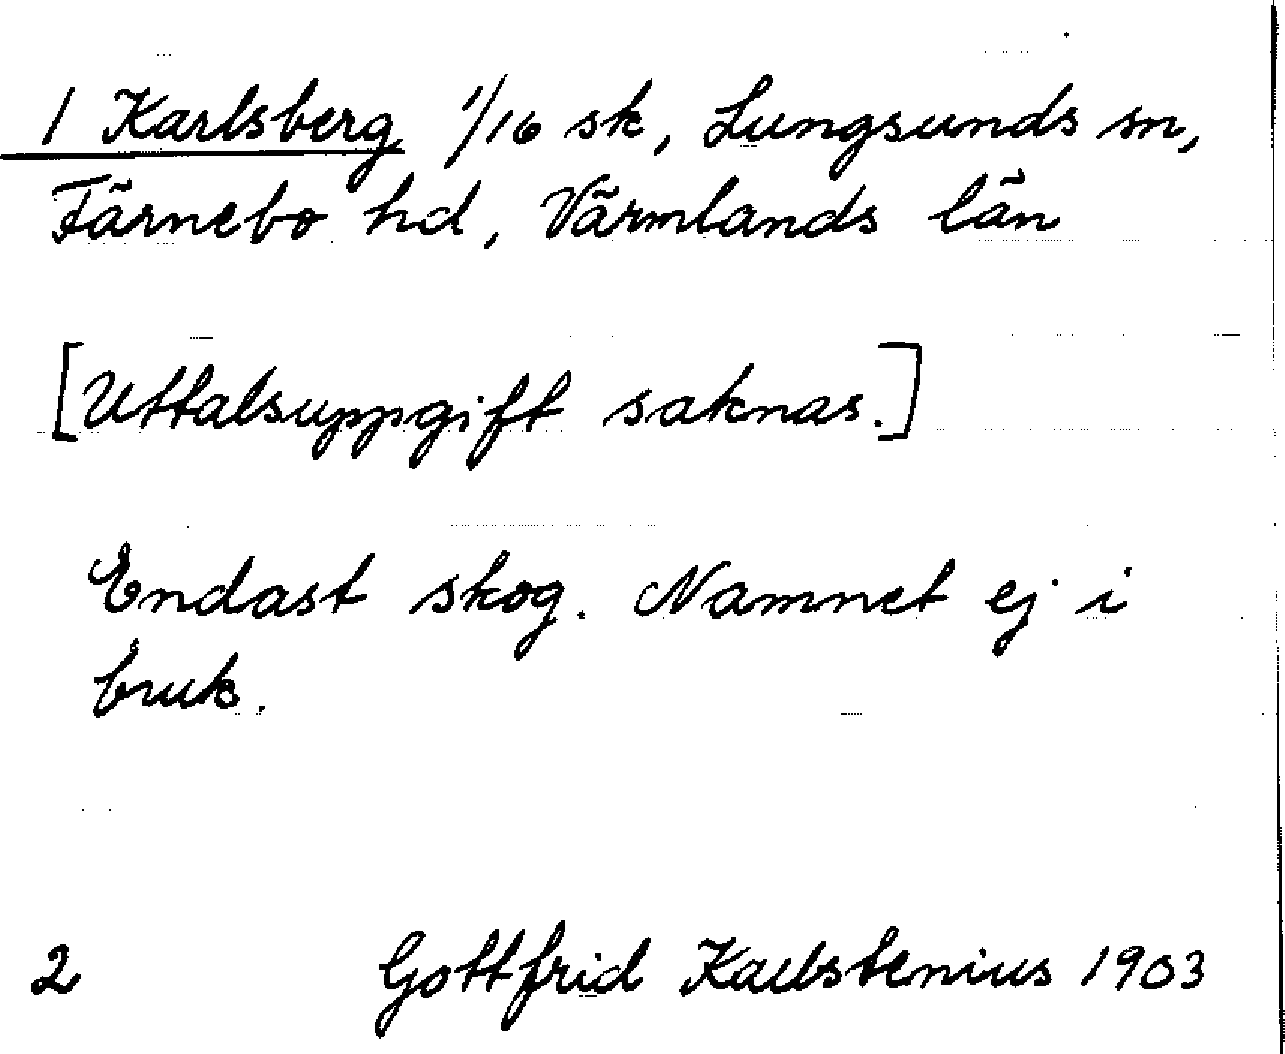 1 Karlsberg 1/16 sk, Lungsunds sn,
Färnebo hd, Värmlands län
[Uttalsuppgift saknas.]
Endast skog. Namnet ej i
bruk.
2 Gottfrid Kallstenius 1903